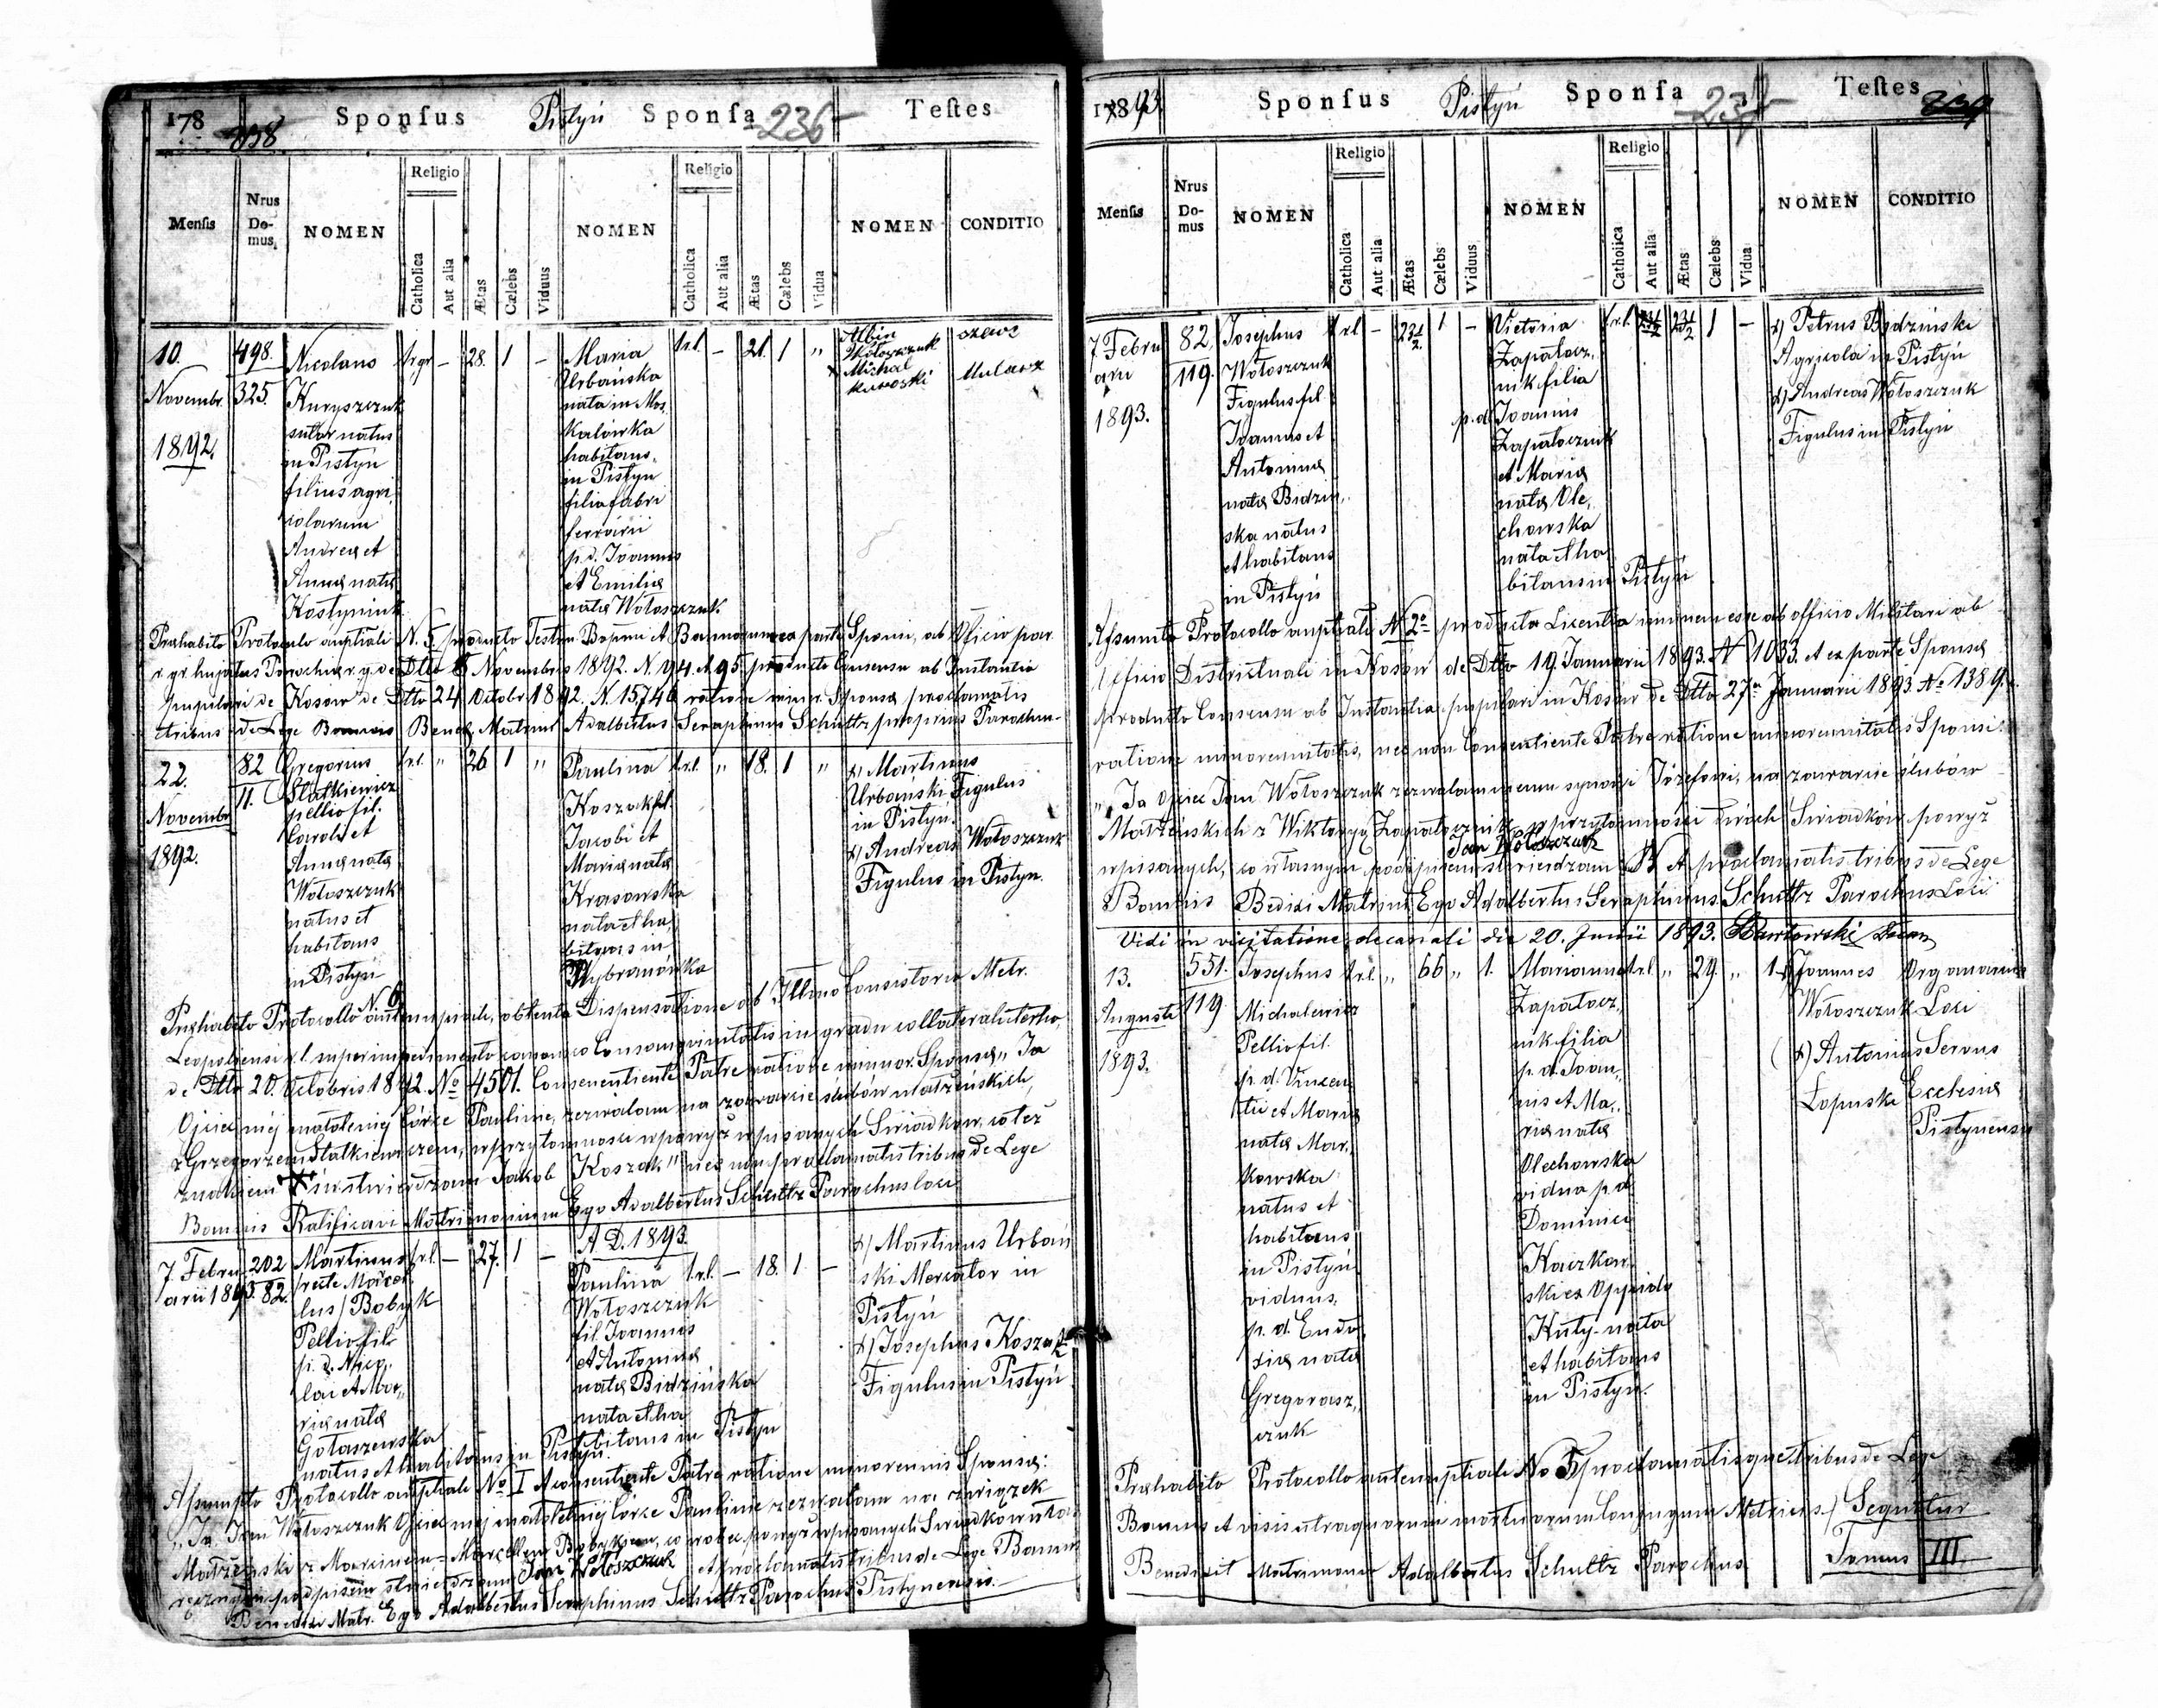 178
Sponsus
Pistyń
Sponsa
236
Testes
Mensis
Nrus Do-mus.
NOMEN
Religio
Catholica
Aut alia
Ætas
Cælebs
Viduus
NOMEN
Religio
Catholica
Aut alia
Ætas
Cælebs
Vidua
NOMEN
CONDITIO
10.
Novembr.
1892.
498.
325.
Nicolaus
Kuryszczuk
sutor natus
in Pistyń
filius agri
colarum
Andreæ et
Annæ natæ
Kostyniuk
r. gr.
–
28.
1
–
Maria
Urbańska
nata in Mos
kalówka
habitans
in Pistyn
filia fabri
ferrarii
p. d. Joannis
et Emiliæ
natæ Wołoszczuk
r. l.
–
21.
1
"
Albin
Wołoszczuk
szewc
Michał
Kuroski
Mularz
Præhabito Protocolo anptiali N. 5 producto Testim. Bapmi et Bannorum ex parte Sponsi, ab Officio par.
r. gr. hujatus Parochiæ r. g. de Dtto 6 Novembris 1892. N. 94. et 95. producto Consensu ab Instantia
pupilari de Kosow de Dtto 24 Octobr 1892. N. 15746 ratione minor. Sponsæ proclamatis
tribus de Lege Bannis Bened. Matrim. Adalbertus Seraphinus Schultz proprius Parochus
22.
Novembr.
1892.
82
11.
Gregorius
Statkiewicz
pellio fil.
Caroli et
Annæ natæ
Wołoszczuk
natus et
habitans
in Pistyń
r. l.
"
26
1
"
Paulina
Koszak fil.
Jacobi et
Mariæ natæ
Krasowska
nata et ha
bitans in
r. l.
"
18.
1
"
Martinus
Urbanski Figulus
in Pistyń.
Andreas Wołoszczuk
Figulus in Pistyn.
Præhabito Protocollo N. 6 antenuptiali, obtenta Dispensatione ab Illmo Consistorio Metr.
Leopoliensi r. l. super impedimento canonico Consangvinitatis in gradu collaterali tertio,
de Dtto 20. Octobris 1892. No 4501. Consenentiente Patre ratione minor. Sponsæ, "Ja
Ojciec mej małoletniej córce Paulinie, zezwalam na zawarcie ślubów małżeńskich,
z Grzegorzem Statkiewiczem, w przytomności wpowyż wpisanych Swiadków, co też
znakiem krzyża stwierdzam Jakob Koszak" nec non proclamatis tribus de Lege
Bannis Ratificavi Matrimonium Ego Adalbertus Schultz Parochus loci
A. D. 1893.
7. Febru
arii 1893.
202
82.
Martinus
(recte Marcel
lus) Bobyk
Pellio fil.
p. d. Nico
lai et Ma
riæ natæ
Gołaszewska
natus et habitans in Pistyń.
r. l.
–
27.
1
–
Paulina
Wołoszczuk
fil. Joannis
et Antoninæ
natæ Bidzińska
nata et ha
bitans in Pistyń
r. l.
–
18.
1.
–
Martinus Urbań
ski Mercator in
Pistyń
Josephus Koszak
Figulus in Pistyń
Assumpto Protocollo anptiali No I et consentiente Patre ratione minorennis Sponsæ:
"Ja Jan Wołoszczuk Ojciec mej małoletniej córce Paulinie zezwalam na związek
Małżeński z Marcinem = Marcellem Bobykiem, co wobec powyż wpisanych Swiadków własno
ręcznym podpisem stwierdzam Jan Wołoszczuk et proclamatis tribus de Lege Bannis
Benedixi Matr. Ego Adalbertus Seraphinus Schultz Parochus Pistynensis.
1893
Sponsus
Pistyń
Sponsa
Testes
Mensis
Nrus Do-mus
NOMEN
Religio
Catholica
Aut alia
Ætas
Cælebs
Viduus
NOMEN
Religio
Catholica
Aut alia
Ætas
Cælebs
Vidua
NOMEN
CONDITIO
7. Febru
arii
1893.
82.
119.
Josephus
Wołoszczuk
Figulus fil.
Joannis et
Antoninæ
natæ Bidzin
ska natus
et habitans
in Pistyń
r. l.
–
23 1/2
1
–
Victoria
Zapałocz
nik filia
p. d. Joannis
Zapałocznik
et Mariæ
natæ Ole
chowska
nata et ha
bitans in Pistyń
r. l.
23 1/2
1
–
Petrus Bidziński
Agricola in Pistyń
Andreas Wołoszczuk
Figulus in Pistyń
Assumto Protocollo anptiali No 2o producta Licentia immunem esse ab officio Militari ab
Officio Districtuali in Kosów de Dtto 19. Januarii 1893. N 1033. et ex parte Sponsæ
producto Consensu ab Instantia pupilari in Kosów de Dtto 27a Januarii 1893. No 1389.
ratione minorennitatis, nec non Consentiente Patre ratione minorennitatis Sponsi:
"Ja Ojciec Jan Wołoszczuk zezwalam memu synowi Józefowi, na zawarcie slubów
Małżeńskich z Wiktoryą Zapałocznik w przytomności dwóch Swiadków powyż
wpisanych, co własnym podpisem stwierdzam Jan Wołoszczuk et proclamatis tribus de Lege
Bannis Bedixi Matrim. Ego Adalbertus Seraphinus Schultz Parochus Loci
Vidi in visitatione decanali die 20. Junii 1893.
13.
Augusti
1893.
551.
119
Josephus
Michalewicz
Pellio fil.
p. d. Vincen
tii et Mariæ
natæ Mar
kowska
natus et
habitans
in Pistyń
viduus,
p. d. Eudo
xiæ natæ
Gregorasz
czuk
r. l.
"
66
"
1.
Marianna
Zapałocz
nik filia
p. d. Joan
nis et Ma
riæ natæ
Olechowska
vidua p. d.
Dominici
Kaczkow
ski ex Oppido
Kuty nata
et habitans
in Pistyń.
r. l.
"
29.
"
1
Joannes
Wołoszczuk
Organarius
Loci
Antonius
Łopuski
Servus
Ecclesiæ
Pistynensis
Præhabito Protocollo antenuptiali No 5 proclamatisque tribus de Lege
Bannis et visis utraquorum mortuorum Conjugum Metricis.
Benedixit Matrimon. Adalbertus Schultz Parochus
Sequitur
Tomus III.